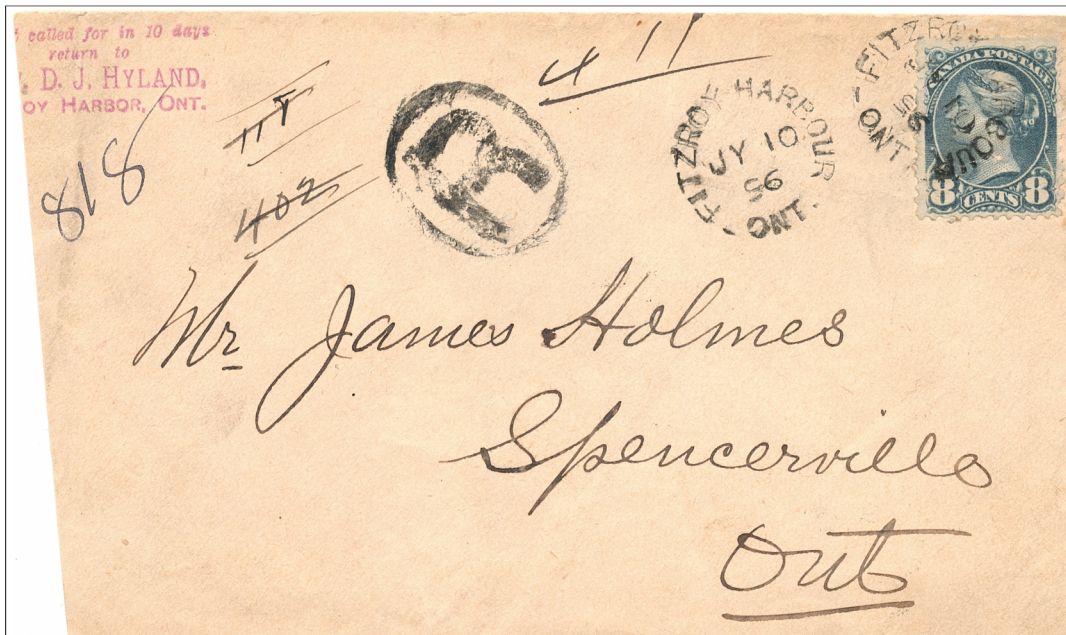 called for in 10 days
return to
D. J. HYLAND,
OY HARBOR, ONT.
818
402
R
FITZROY HARBOUR
JY 10
96
ONT.
FITZROY
ONT
OUR
CANADA POSTAGE
8 CENTS 8
Mr James Holmes
Spencerville
Ont